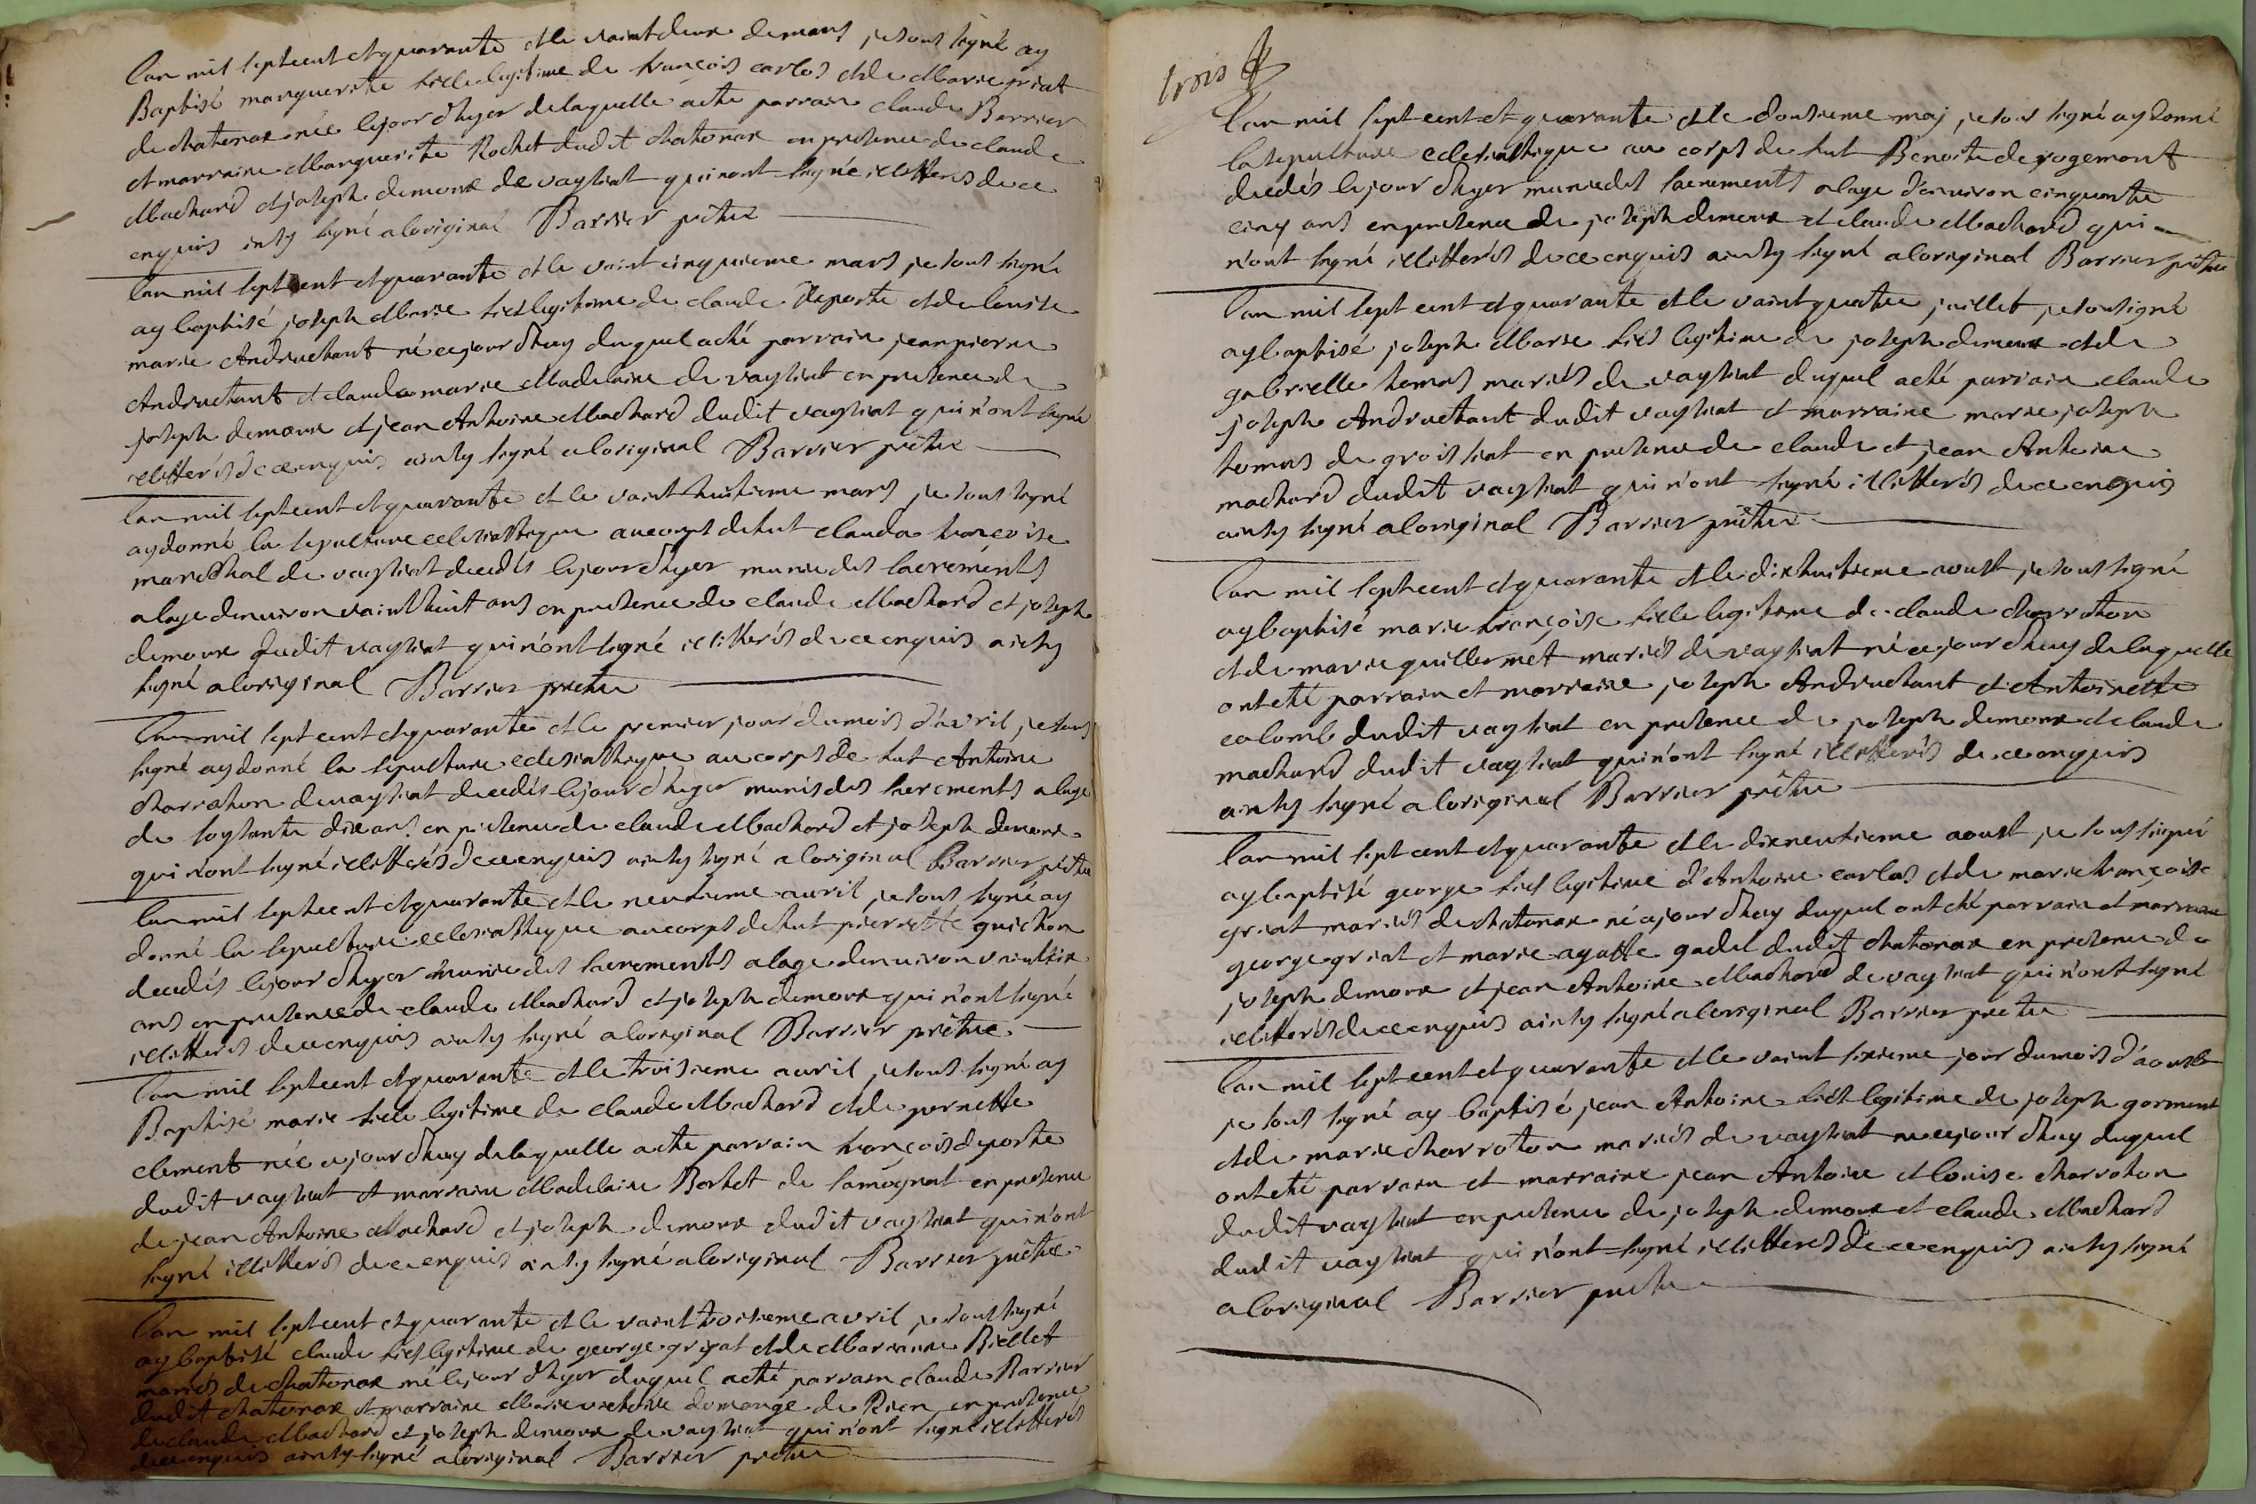 l'an mil septcent et quarante et le vaint deux de mars je sous signé ay
Baptisé marguerite fille legitime de françois carlos et de Marie griat
de chatonax née le jour d'hyer de laquelle a été parrain claude Barrier
et marraine Marguerite Rochet dudit chatonax en presence de claude
Machard et joseph demoux de vaysiat qui n'ont signé illitterés de ce
enquis insy signé a loriginal Barrier prêtre
l'an mil septcent et quarante et le vaint cinquieme mars je sous signé
ay baptisé joseph Marie fils legitime de claude deporte et de louise
marie Andruchant né ce jour d'huy duquel a été parrain jean pierre
Andruchant et clauda marie Madelaine de vaysiat en presence de
joseph demoux et jean Antoine Machard dudit vaysiat qui n'ont signé
illitterés de ce enquis ainsy signé a loriginal Barrier prêtre
l'an mil septcent et quarante et le vaint huitieme mars je sous signé
ay donné la sepulture eclesiastique au corps de fut clauda françoise
marechal de vaysiat decedés le jour d'hyer munie des sacrements
a lage denviron vaint huit ans en presence de claude Machard et joseph
demoux dudit vaysiat qui n'ont signé illitterés de ce enquis ainsy
signé a loriginal Barrier prêtre
l'an mil septcent et quarante et le premier jour du mois d'avril je sous
signé ay donné la sepulture eclesiastique au corps de fut Antoine
charraton de vaysiat decedés le jour d'hyer munis des sacrements a lage
de soysante dix ans en presence de claude Machard et joseph demoux
qui n'ont signé illitterés de ce enquis ainsy signé a loriginal Barrier prêtre
l'an mil septcent et quarante et le neuvieme avril je sous signé ay
donné la sepulture eclesiastique au corps de fut pierrette guichon
decedés le jour d'hyer munie des sacrements a lage denviron vaint six
ans en presence de claude Machard et joseph demoux qui n'ont signé
illitterés de ce enquis ainsy signé a loriginal Barrier prêtre
l'an mil septcent et quarante et le troisieme avril je sous signé ay
Baptisé marie fille legitime de claude Machard et de pernette
clement née ce jour d'huy de laquelle a été parrain françois deporte
dudit vaysiat et marraine Madelaine Berhet de samognat en presence
de jean Antoine Machard et joseph demoux dudit vaysiat qui n'ont
signé illitterés de ce enquis ainsy signé a loriginal Barrier prêtre
l'an mil septcent et quarante et le vaint troisieme avril je sous signé
ay baptisé claude fils legitime de george griat et de Marianne Biellet
mariés de chatonax né le jour d'hyer duquel a été parrain claude Barrier
dudit chatonax et marraine Marie victoire domange de Rion en presence
de claude Machard et joseph demoux de vaysiat qui n'ont signé illitterés
de ce enquis ainsy signé a loriginal Barrier prêtre
trois
l'an mil septcent et quarante et le douzieme maj je sous signé ay donné
la sepulture eclesiastique au corps de fut Benoite de rogemont
decedés le jour d'hyer munie des sacrements a lage d'environ cinquante
cinq ans en presence de joseph demoux et claude Machard qui
n'ont signé illitterés de ce enquis ainsy signé a loriginal Barrier prêtre
l'an mil septcent et quarante et le vaint quatre juillet je sousigné
ay baptisé joseph Marie fils legitime de joseph demoux et de
gabrielle tomas mariés de vaysiat duquel a été parrain claude
joseph Andruchant dudit vaysiat et marraine marie joseph
tomas de groissiat en presence de claude et jean Antoine
machard dudit vaysiat qui n'ont signé illitterés de ce enquis
ainsy signé a loriginal Barrier prêtre
l'an mil septcent et quarante et le dixhuitieme aoust je sous signé
ay baptisé marie françoise fille legitime de claude charraton
et de marie guillermet mariés de vaysiat né ce jour d'huy de laquelle
ont eté parrain et marraine joseph Andruchant et Antoinette
colomb dudit vaysiat en presence de joseph demoux et claude
machard dudit vaysiat qui n'ont signé illitterés de ce enquis
ainsy signé a loriginal Barrier prêtre
l'an mil septcent et quarante et le dixneufvieme aoust je sous signé
ay baptisé george fils legitime d'Antoine carlos et de marie françoise
griat mariés de chatonax né ce jour d'huy duquel ont eté parrain et marraine
george griat et marie agatte gadel dudit chatonax en presence de
joseph demoux et jean Antoine Machard de vaysiat qui n'ont signé
illitterés de ce enquis ainsy signé a loriginal Barrier prêtre
l'an mil septcent et quarante et le vaint sixieme jour du mois d'aoust
je sous signé ay baptisé jean Antoine fils legitime de joseph gorment
et de marie charraton mariés de vaysiat né ce jour d'huy duquel
ont eté parrain et marraine jean Antoine et louise charraton
dudit vaysiat en presence de joseph demoux et claude Machard
dudit vaysiat qui n'ont signé illitterés de ce enquis ainsy signé
a loriginal Barrier prêtre